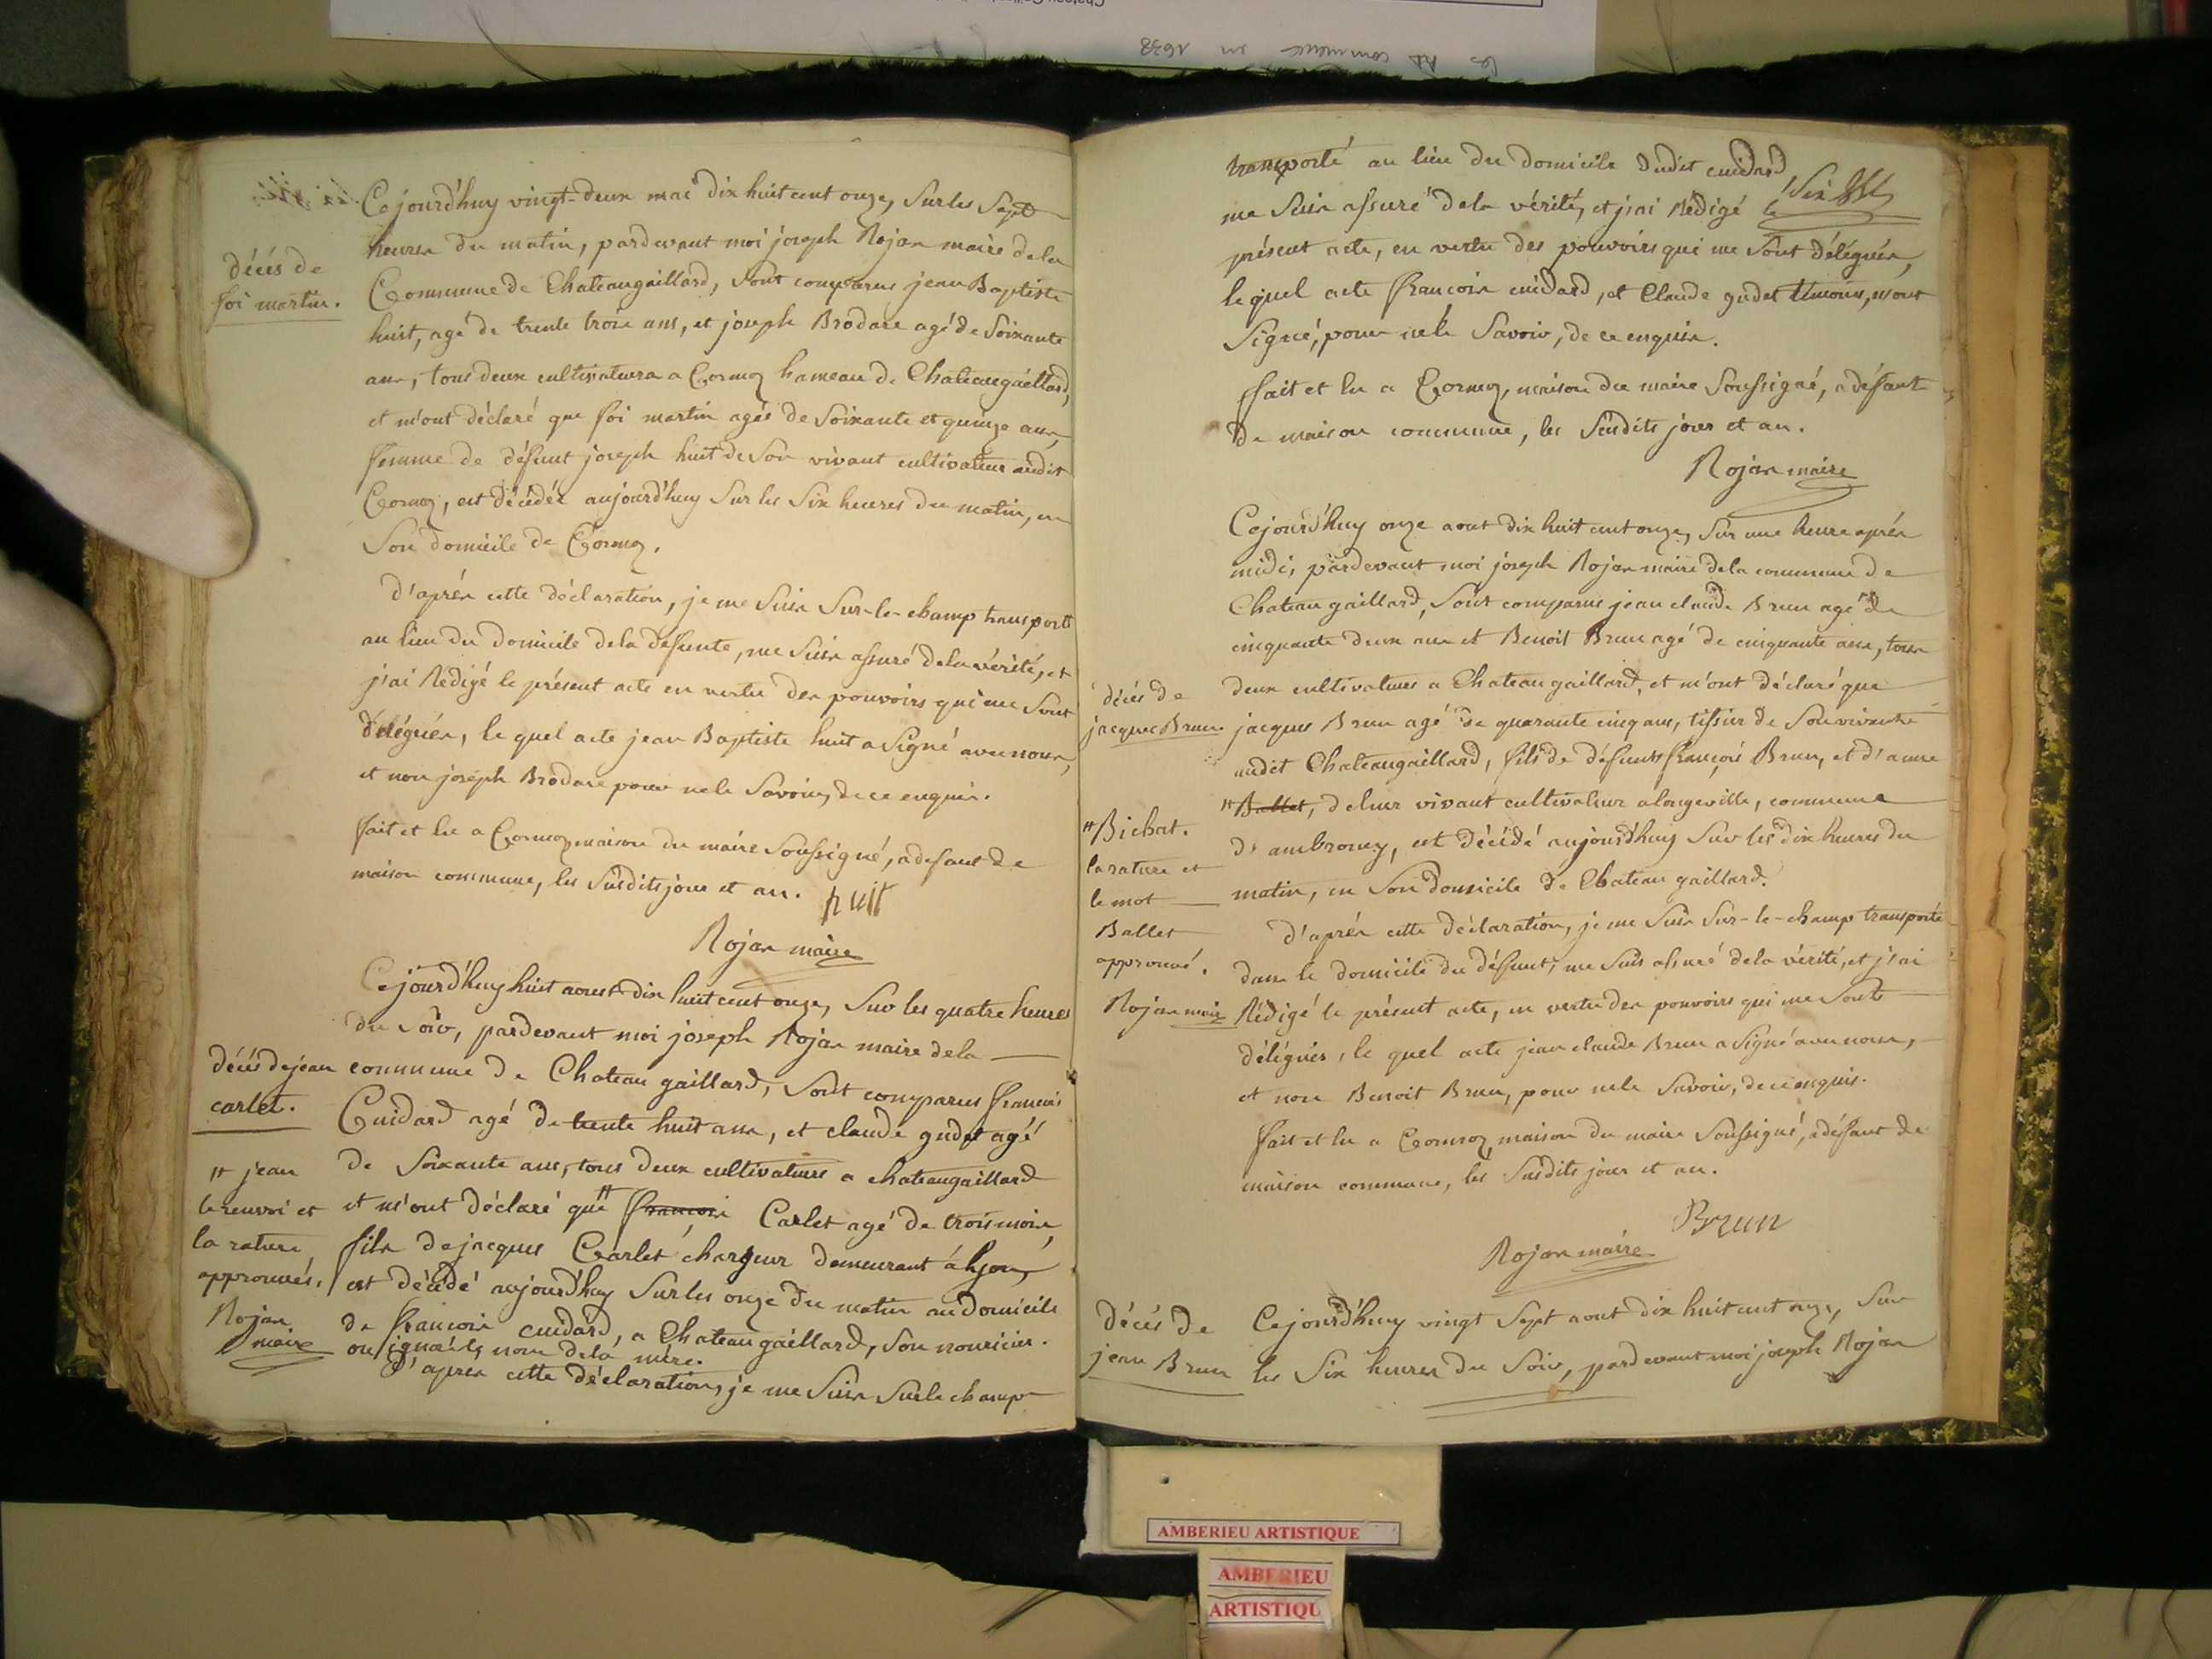 Cejourd'huy vingt-deux mai dix huit cent onze, Sur les Sept
heures du matin, pardevant moi joseph Rojan maire dela
décés de
foi martin.
Commune de Chateaugaillard, Sont comparus jean Baptiste
huit, agé de trente trois ans, et joseph Brodare agé de Soixante
ans, tous deux cultivateurs a Cormoz hameau de Chateaugaillard,
et m'ont déclaré que foi martin agée de Soixante et quinze ans,
femme de défunt joseph huit de Son vivant cultivateur audit
Cormoz, est décédée aujourd'huy Sur les Six heures du matin, en
Son domicile de Cormoz.
d'aprés cette déclaration, je me Suis Sur-le-champ transporté
au lieu du domicile dela défunte, me Suis assuré dela vérité, et
j'ai Rédigé le présent acte en vertu des pouvoirs qui me Sont
délégués, le quel acte jean Baptiste huit a Signé avec nous,
et non joseph Brodare pour nele Savoir, de ce enquis.
fait et lu a Cormoz maison du maire Soussigné, a defaut de
maison commune, les Susdits jour et an. huit
Rojan maire
Cejourd'huy huit aoust dix huit cent onze, Sur les quatre heures
du Soir, pardevant moi joseph Rojan maire dela
décés de jean
carlet.
commune de Chateau gaillard, Sont comparus francois
Cuidard agé de trente huit ans, et claude gudet agé
de Soixante ans, tous deux cultivateurs a chateaugaillard
# jean
le renvoi et
la rature
approuvés.
Rojan
maire
et m'ont déclaré que # francois Carlet agé de trois mois,
fils de jacques Carlet chargeur demeurant à lyon,
est décédé aujourd'huy Sur les onze du matin au domicile
de francois cuidard, a Chateau gaillard, Son nouricier.
on ignore le nom de la mére.
d'aprés cette déclaration, je me Suis Sur le champ
transporté au lieu du domicile dudit cuidard
me Suis assuré dela vérité, et j'ai Rédigé le
présent acte, en vertu des pouvoirs qui me Sont délégués,
le quel acte francois cuidard, et Claude gudet témoins, n'ont
Signé, pour nele Savoir, de ce enquis.
fait et lu a Cormoz, maison du maire Soussigné, a défaut
de maison commune, les Susdits jour et an.
Rojan maire
Cejourd'huy onze aout dix huit cent onze, Sur une heure aprés
midi, pardevant moi joseph Rojan maire dela commune de
Chateau gaillard, Sont comparus jean claude Brun agé de
cinquante deux ans et Benoit Brun agé de cinquante ans, tous
deux cultivateurs a Chateau gaillard, et m'ont déclaré que
décés de
jacques Brun
jacques Brun agé de quarante cinq ans, tissier de Son vivant
audit Chateaugaillard, fils de défunts françois Brun, et d'anne
# Ballet, de leur vivant cultivateur a longeville, commune
# Bichat.
la rature et
le mot
Ballet
approuvé.
Rojan maire
d'ambronay, est décédé aujourd'huy Sur les dix heures du
matin, en Son domicile de Chateau gaillard.
d'aprés cette déclaration, je me Suis Sur-le-champ transporté
dans le domicile du défunt, me Suis assuré dela vérité, et j'ai
Rédigé le présent acte, en vertu des pouvoirs qui me Sont
délégués, le quel acte jean claude Brun a Signé avec nous,
et non Benoit Brun, pour nele Savoir, de ce enquis.
fait et lu a Cormoz, maison du maire Soussigné, a défaut de
maison commune, les Susdits jour et an.
Brun
Rojan maire
Décés de
jean Brun
Cejourd'huy vingt Sept aout dix huit cent onze, Sur
les Six heures du Soir, pardevant moi joseph Rojan
AMBERIEU ARTISTIQUE
AMBERIEU
ARTISTIQU